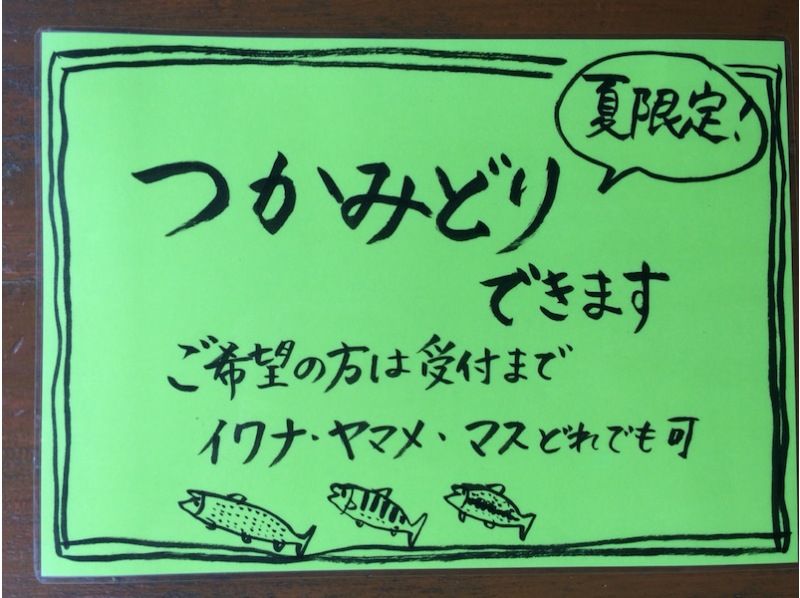 夏限定!
つかみどり
できます
ご希望の方は受付まで
イワナ・ヤマメ・マスどれでも可